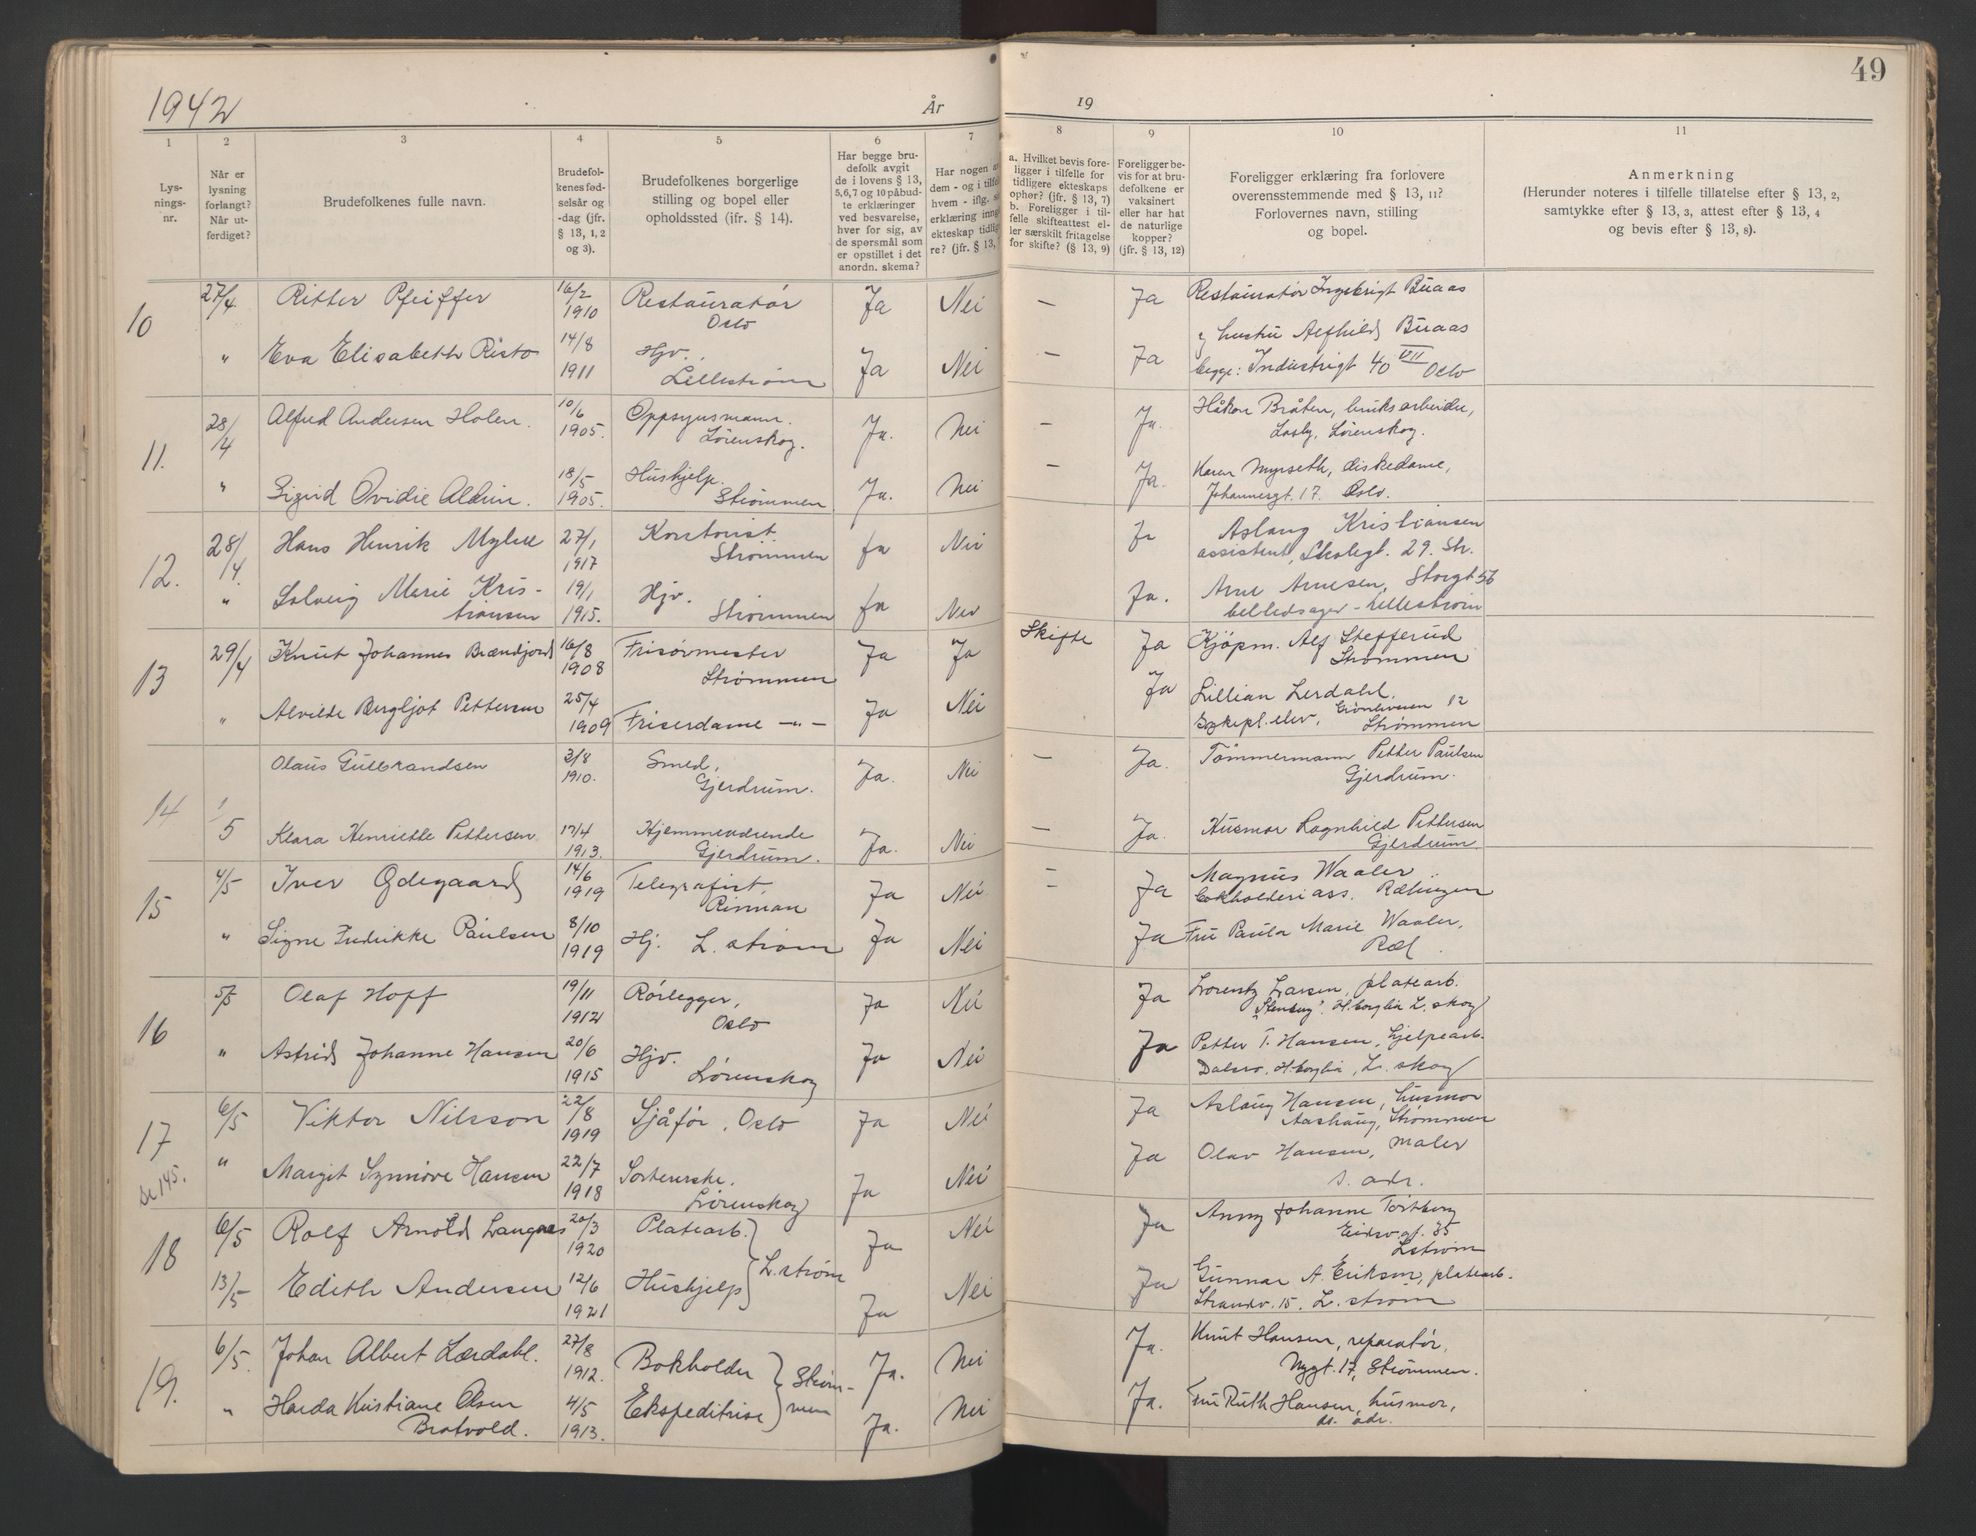 1942
År
19
49
1 2 3 4 5 6 7 8 9 10 11
Lys-
nings-
nr.
Når er
lysning
forlangt?
Når ut-
ferdiget?
Brudefolkenes fulle navn.
Brudefol-
kenes fød-
selsår og
-dag (jfr.
§ 13, 1, 2
og 3).
Brudefolkenes borgerlige
stilling og bopel eller
opholdssted (ifr. § 14).
Har begge bru-
defolk avgit
de i lovens § 13,
5, 6, 7 og 10 påbud-
te erklæringer
ved besvarelse,
hver for sig, av
de spørsmål som
er opstillet i det
anordn. skema?
Har nogen av
dem - og i tilfe
hvem - iflg. s
erklæring inng
ekteskap tidlig
re? (jfr. § 13,
a. Hvilket bevis fore-
ligger i tilfelle for
tidligere ekteskaps
ophør? (jfr. § 13, 7)
b. Foreligger i til-
felle skifteattest el-
ler særskilt fritagelse
for skifte? (§ 13, 9)
Foreligger be-
vis for at bru-
defolkene er
vaksinert
eller har hat
de naturlige
kopper?
(jfr. § 13, 12)
Foreligger erklæring fra forlovere
overensstemmende med § 13, 11?
Forlovernes navn, stilling
og bopel.
Anmerkning
(Herunder noteres i tilfelle tillatelse efter § 13, 2,
samtykke efter § 13, 3, attest efter § 13, 4
og bevis efter § 13, 8).
10 27/4 Ritter Pfeiffer 16/2 1910 Restauratör Oslo Ja Nei — Ja Restauratør Ingebrigt Buaas
" Eva Elisabeth Risto 14/8 1911 Hjv. Lillestrøm Ja Nei — Ja og hustru Alfhild Buaas
begge: Industrigt 40 VII Oslo
11. 28/4 Alfred Andersen Holen. 10/6 1905. Oppsynsmann. Lörenskog. Ja. Nei — Ja. Håkon Bråten, bruksarbeider,
Losby, Lörenskog.
" Sigrid Ovidie Aldrin. 18/5 1905. Hushjelp. Strömmen Ja. Nei — Ja. Karen Myrseth, diskedame,
Johannesgt. 17. Oslo.
12. 28/4. Hans Henrik Myhre 27/1 1917 Kontorist. Strömmen Ja Nei Ja Aslaug Kristiansen
assistent, Skolegt. 29. Str.
" Solveig Marie Kris-
tiansen 19/1 1915. Hjv. Strömmen Ja Nei Ja. Arne Arnesen, Storgt 56
belledsager - Lillestrøm
13 29/4 Knut Johannes Brændjord 16/8 1908 Frisörmester Strömmen Ja Ja Skifte Ja Kjöpm. Alf Stefferud
Strömmen
" Alvilde Bergljot Pettersen 25/4 1909 Friserdame —"— Ja Nei Ja Lillian Lerdahl.
Sykepl. elev, 12
Strömmen
14 1/5 Olaus Gulbrandsen 3/8 1910. Smed, Gjerdrum. Ja. Nei — Ja. Tömmermann Petter Paulsen
Gjerdrum.
Klara Henriette Pettersen 17/4 1913. Hjemmeværende Gjerdrum. Ja. Nei — Ja. Husmor Ragnhild Pettersen
Gjerdrum.
15 4/5 Iver Ödegaard 14/6 1919 Telegrafist, Rinnan Ja Nei — Ja Magnus Waaler
bokholderiass. Rælingen
" Signe Fredrikke Paulsen 8/10 1919 Hj. L. strøm Ja Nei — Ja Fru Paula Marie Waaler,
Ræl.
16 5/5 Olaf Hoff 19/11 1912 Rörlegger, Oslo Ja Nei Ja Lorentz Larsen, platearb.
H. borglia L. skog
" Astrid Johanne Hansen 20/6 1915 Hjv. Lörenskog Ja Nei Ja Petter T. Hansen, hjelpearb.
Dalsro, H. borglia, L. skog
17 6/5 Viktor Nilsson 22/8 1919 Sjåför, Oslo Ja Nei Ja Aslaug Hansen, husmor
Aashaug, Strömmen
145. " Margit Synnöve Hansen 22/7 1918 Sorterske. Lörenskog Ja Nei Ja Olav Hansen, maler
s. adr.
18 6/5 Rolf Arnold Langnes 20/3 1920 Platearb. L. ström Ja Nei Ja Anny Johanne Torkberg
Eidsv.gt. 35
L ström
13/5 Edith Andersen 12/6 1921 Hushjelp Ja Nei Ja Gunnar A. Eriksen, platearb.
Strandv. 15. L. ström
19. 6/5. Johan Albert Lærdahl. 27/8 1912. Bokholder Ström- Ja. Nei Ja. Knut Hansen, reparatør,
Nygt. 17, Strömmen.
" Harda Kristiane Olsen
Bratvold. 4/5 1913. Ekspeditrise men Ja. Nei Ja. Fru Ruth Hansen, husmor,
ds. adr.